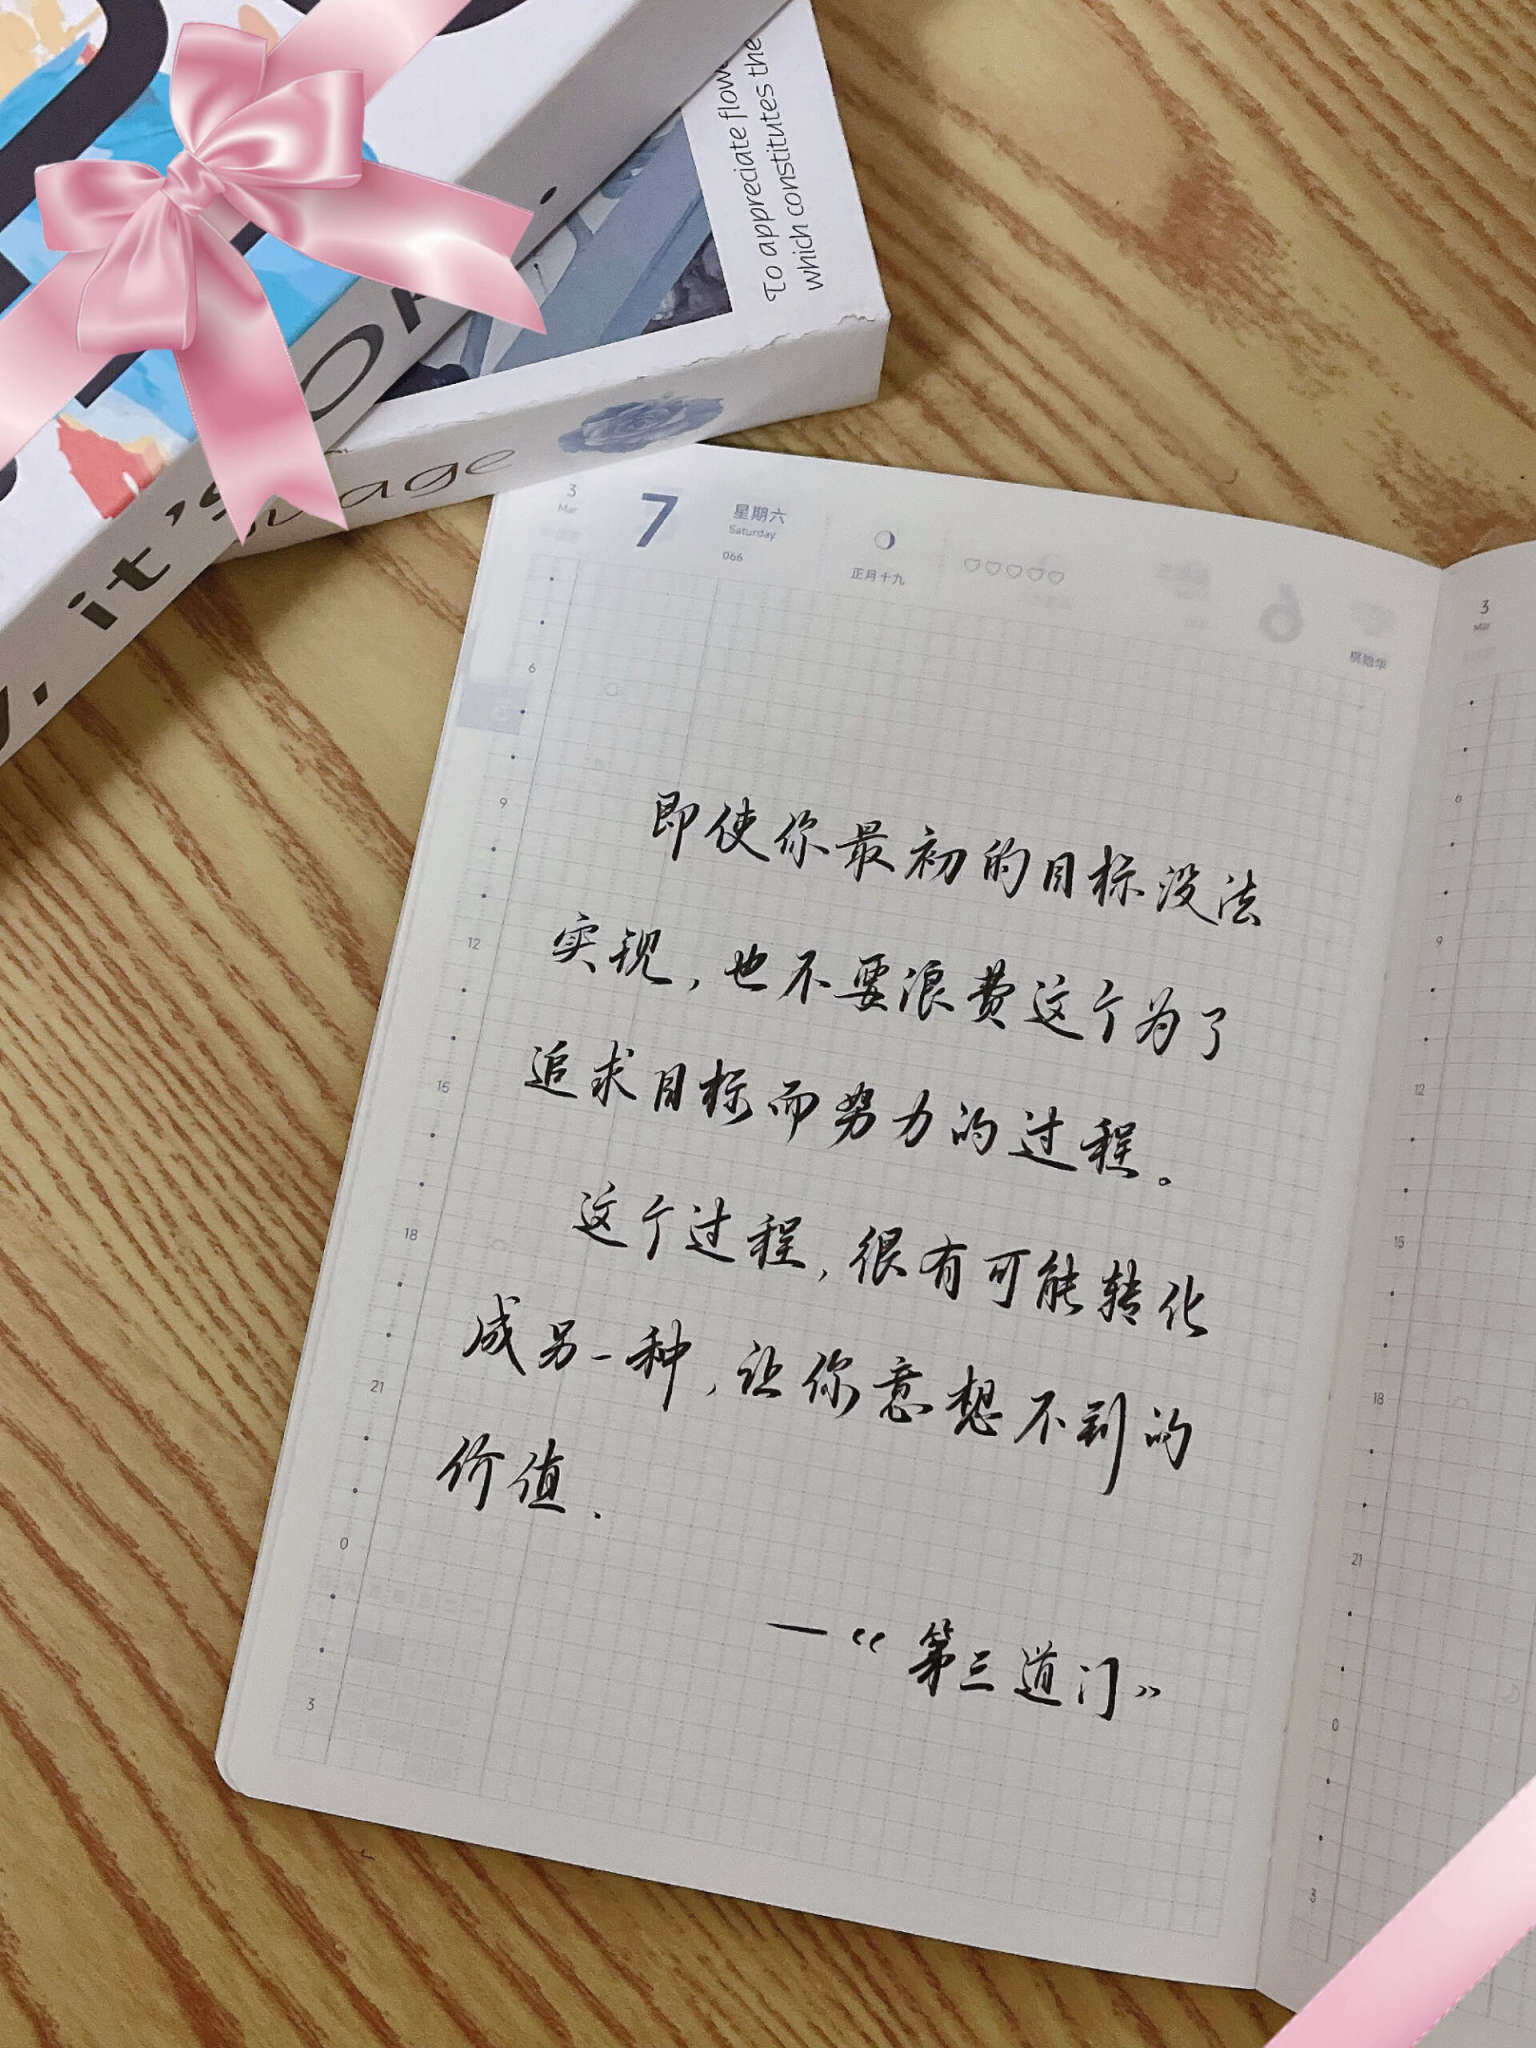 To appreciate flow
which constitutes the
it's
3
Mar
7
星期六
Saturday
066
正月十九
6
9
12
15
18
21
0
3
即使你最初的目标没法
实现，也不要浪费这个为了
追求目标而努力的过程。
这个过程，很有可能转化
成另一种，让你意想不到的
价值.
—《第三道门》
3
Mar
6
9
12
15
18
21
0
3